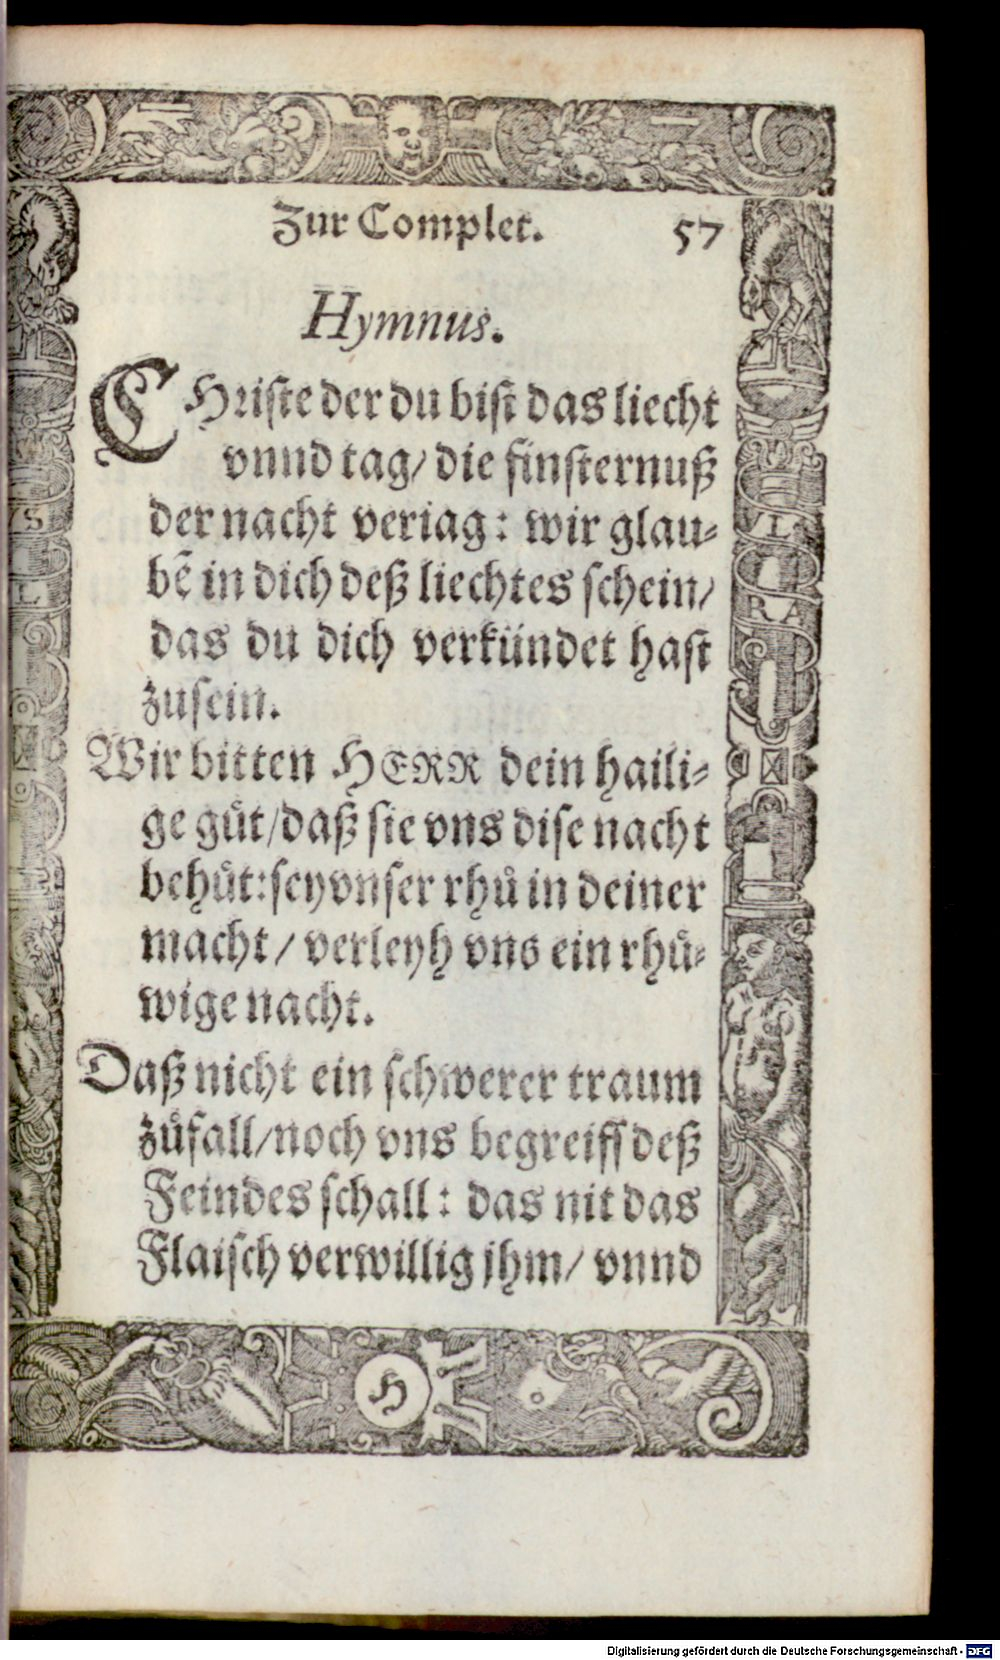 Zur Complet. 57
Hymnus.
CHriste der du bist das liecht
vnnd tag/ die finsternuß
der nacht veriag: wir glau-
bẽ in dich deß liechtes schein/
das du dich verkündet hast
zusein.
Wir bitten HERR dein haili-
ge guͤt/daß sie vns dise nacht
behuͤt:sey vnser rhů in deiner
macht/ verleyh vns ein rhuͤ-
wige nacht.
Daß nicht ein schwerer traum
zůfall/noch vns begreiff deß
Feindes schall: das nit das
Flaisch verwillig jhm/ vnnd
VS
L
VL
RA
H
Digitalisierung gefördert durch die Deutsche Forschungsgemeinschaft - DFG